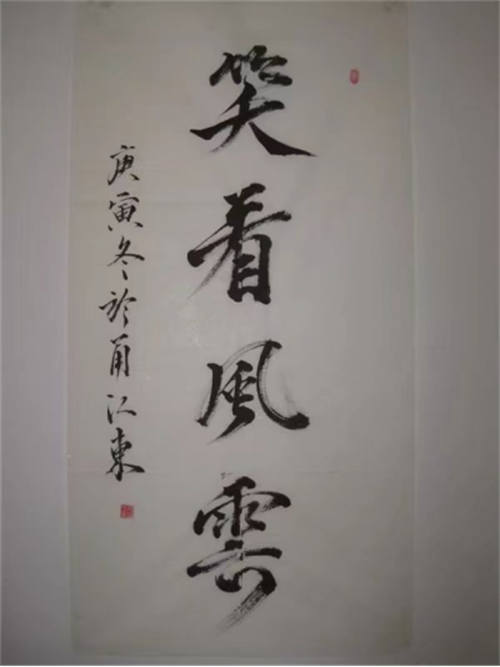 笑看風雲
庚寅冬於甬江東